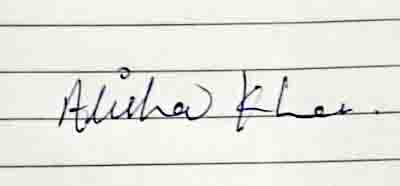 Alisha Khan.